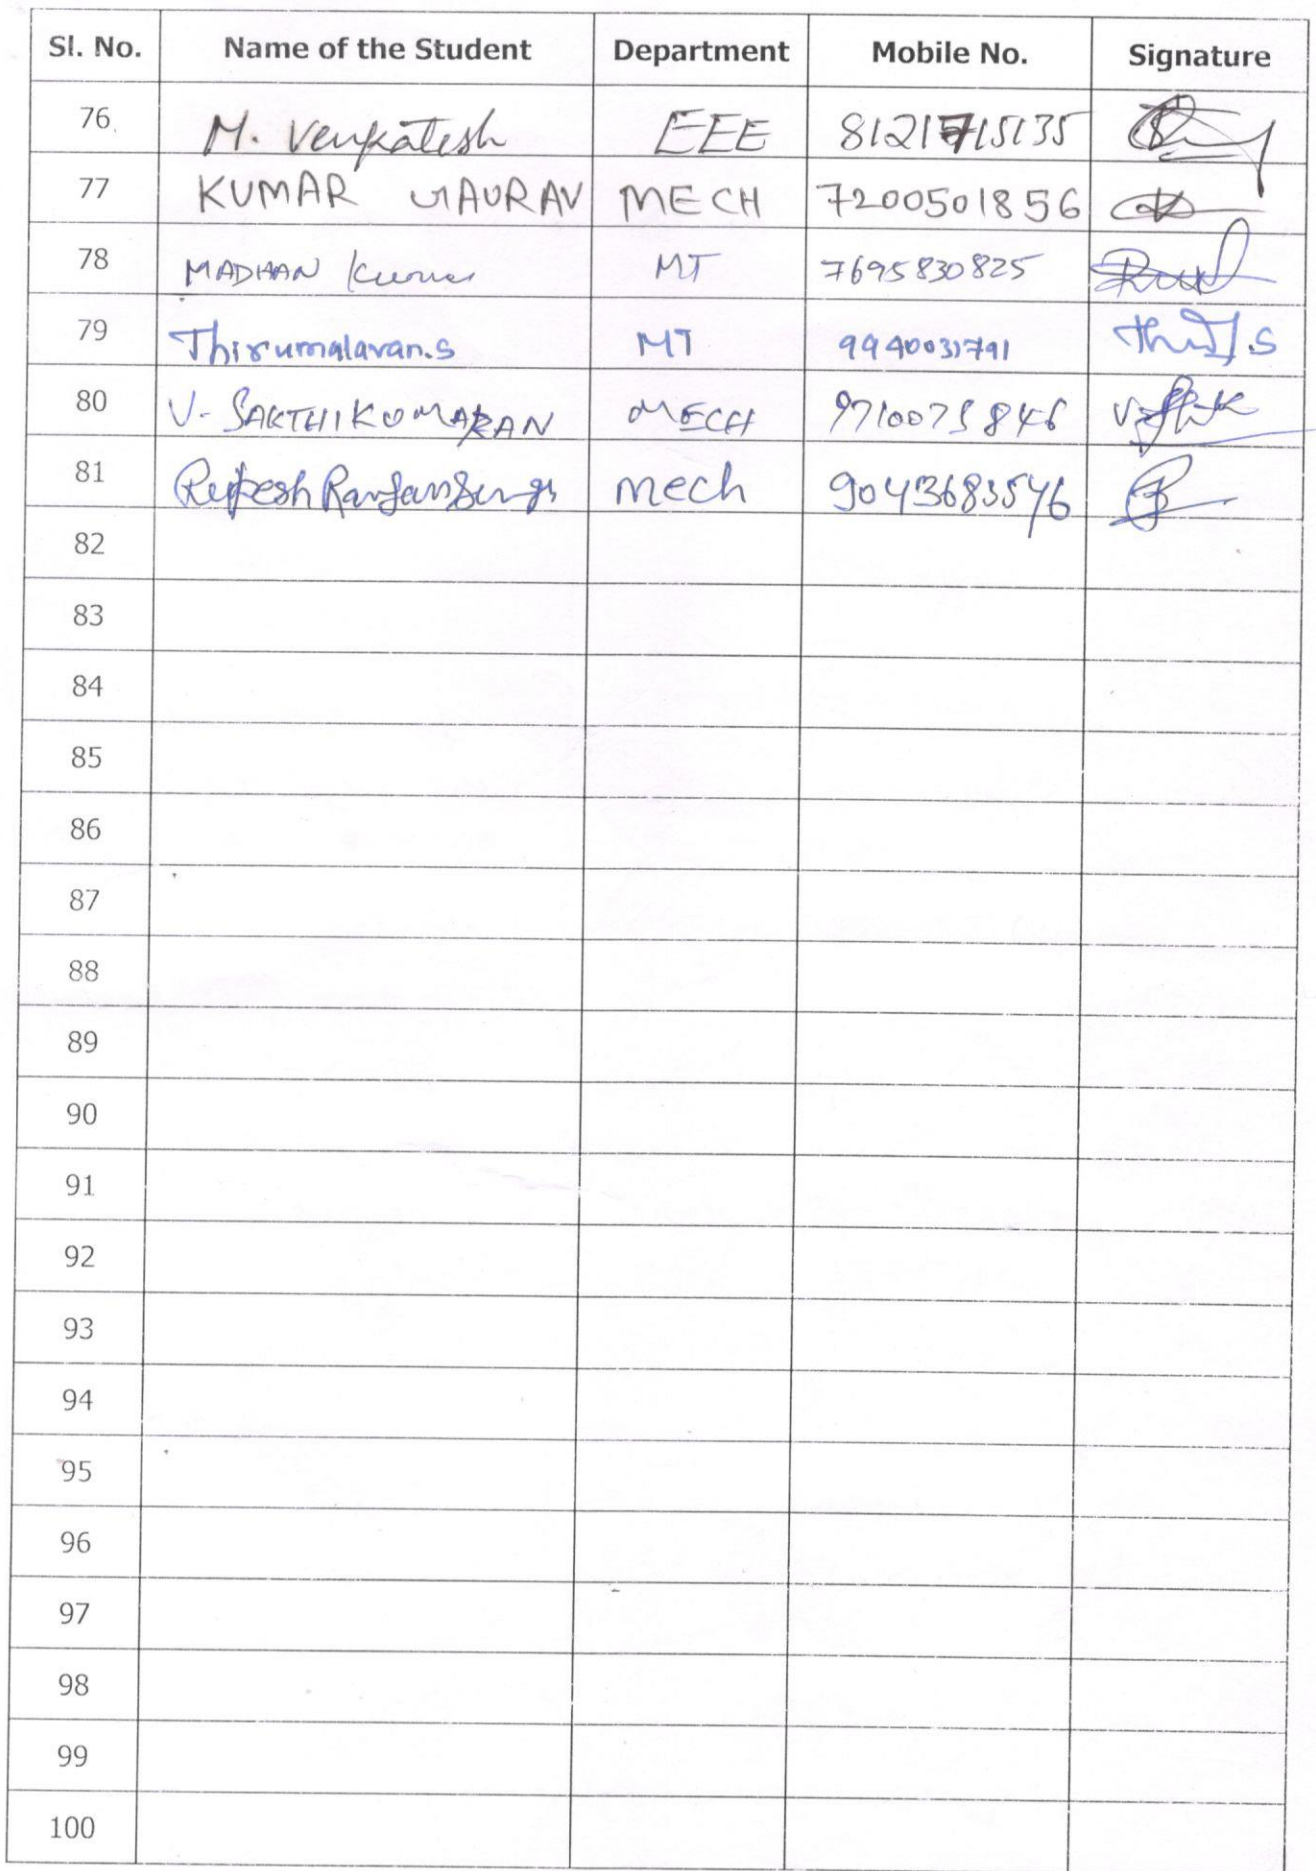 Sl. No. Name of the Student Department Mobile No. Signature
76 M. Venkatesh EEE 8121715135
77 KUMAR GAURAV MECH 7200501856
78 MADHAN Kumar MT 7695830825
79 Thirumalavan.S MT 9940031791
80 V. SAKTHIKUMARAN MECH
81 Rupesh Ranjan Singh mech 9043683546
82
83
84
85
86
87
88
89
90
91
92
93
94
95
96
97
98
99
100